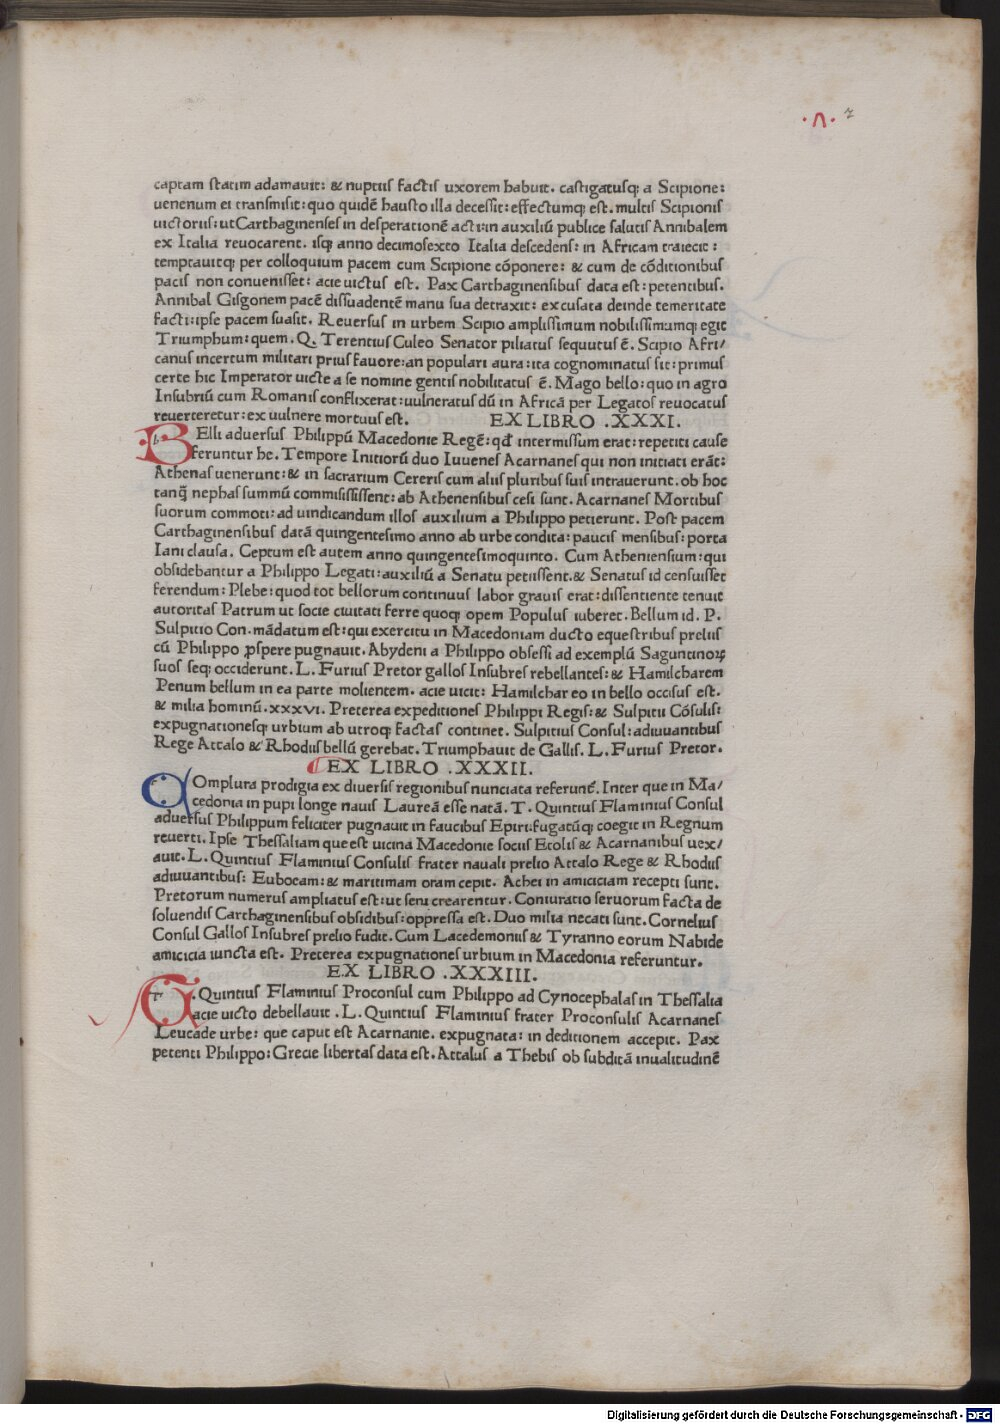 ·Λ· 2
captam statim adamavit: & nuptiis factis uxorem habuit. castigatusq; a Scipione:
uenenum ei transmisit: quo quidē hausto illa decessit: effectumq; est. multis Scipionis
uictoriis: ut Carthaginenses in desperationē acti: in auxiliū publice salutis Annibalem
ex Italia reuocarent. isq; anno decimosexto Italia descedens: in Africam traiecit:
temptauitq; per colloquium pacem cum Scipione cōponere: & cum de cōditionibus
pacis non conuenisset: acie uictus est. Pax Carthaginensibus data est: petentibus.
Annibal Gisgonem pacē dissuadentē manu sua detraxit: excusata deinde temeritate
facti: ipse pacem suasit. Reuersus in urbem Scipio amplissimum nobilissimumq; egit
Triumphum: quem. Q. Terentius Culeo Senator piliatus sequutus ē. Scipio Afri/
canus incertum militari prius fauore: an populari aura: ita cognominatus sit: primus
certe hic Imperator uicte a se nomine gentis nobilitatus ē. Mago bello: quo in agro
Insubriū cum Romanis conflixerat: uulneratus dū in Africā per Legatos reuocatus
reuerteretur: ex uulnere mortuus est. EX LIBRO .XXXI.
BElli aduersus Philippū Macedonie Regē: qđ intermissum erat: repetiti cause
feruntur he. Tempore Initiorū duo Iuuenes Acarnanes qui non initiati erāt:
Athenas uenerunt: & in sacrarium Cereris cum aliis pluribus suis intrauerunt. ob hoc
tanq̄ nephas summū commisississent: ab Athenensibus cesi sunt. Acarnanes Mortibus
suorum commoti: ad uindicandum illos auxilium a Philippo petierunt. Post pacem
Carthaginensibus datā quingentesimo anno ab urbe condita: paucis mensibus: porta
Iani clausa. Ceptum est autem anno quingentesimoquinto. Cum Atheniensium: qui
obsidebantur a Philippo Legati: auxiliū a Senatu petiissent. & Senatus id censuisset
ferendum: Plebe: quod tot bellorum continuus labor grauis erat: dissentiente tenuit
autoritas Patrum ut socie ciuitati ferre quoq; opem Populus iuberet. Bellum id. P.
Sulpitio Con. mādatum est: qui exercitu in Macedoniam ducto equestribus preliis
cū Philippo ꝓspere pugnauit. Abydeni a Philippo obsessi ad exemplū Saguntinoꝝ
suos seq; occiderunt. L. Furius Pretor gallos Insubres rebellantes: & Hamilcharem
Penum bellum in ea parte molientem. acie uicit: Hamilchar eo in bello occisus est.
& milia hominū .xxxvi. Preterea expeditiones Philippi Regis: & Sulpitii Cōsulis:
expugnationesq; urbium ab utroq; factas continet. Sulpitius Consul: adiuuantibus
Rege Attalo & Rhodiis bellū gerebat. Triumphauit de Gallis. L. Furius Pretor.
EX LIBRO .XXXII.
COmplura prodigia ex diuersis regionibus nunciata referunť. Inter que in Ma/
cedonia in pupi longe nauis Laureā esse natā. T. Quintius Flaminius Consul
aduersus Philippum feliciter pugnauit in faucibus Epiri: fugatūq; coegit in Regnum
reuerti. Ipse Thessaliam que est uicina Macedonie sociis Etolis & Acarnanibus uex/
auit. L. Quintius Flaminius Consulis frater nauali prelio Attalo Rege & Rhodiis
adiuuantibus: Euboeam: & maritimam oram cepit. Achei in amiciciam recepti sunt.
Pretorum numerus ampliatus est: ut seni crearentur. Coniuratio seruorum facta de
soluendis Carthaginensibus obsidibus: oppressa est. Duo milia necati sunt. Cornelius
Consul Gallos Insubres prelio fudit. Cum Lacedemoniis & Tyranno eorum Nabide
amicicia iuncta est. Preterea expugnationes urbium in Macedonia referuntur.
EX LIBRO .XXXIII.
T. Quintius Flaminius Proconsul cum Philippo ad Cynocephalas in Thessalia
acie uicto debellauit. L. Quintius Flaminius frater Proconsulis Acarnanes
Leucade urbe: que caput est Acarnanie. expugnata: in deditionem accepit. Pax
petenti Philippo: Grecie libertas data est. Attalus a Thebis ob subditā inualitudinē
Digitalisierung gefördert durch die Deutsche Forschungsgemeinschaft - DFG